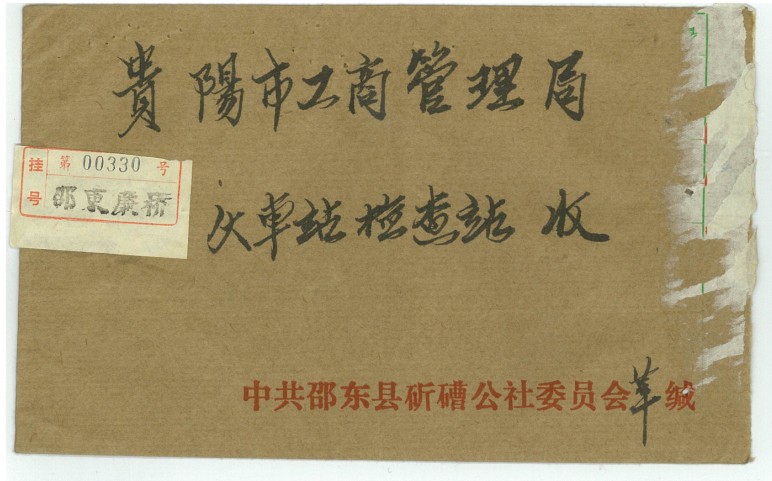 貴陽市工商管理局
挂号 第 00330 号
邵東廉桥
火車站检查站 收
中共邵东县斫磳公社委员会 缄